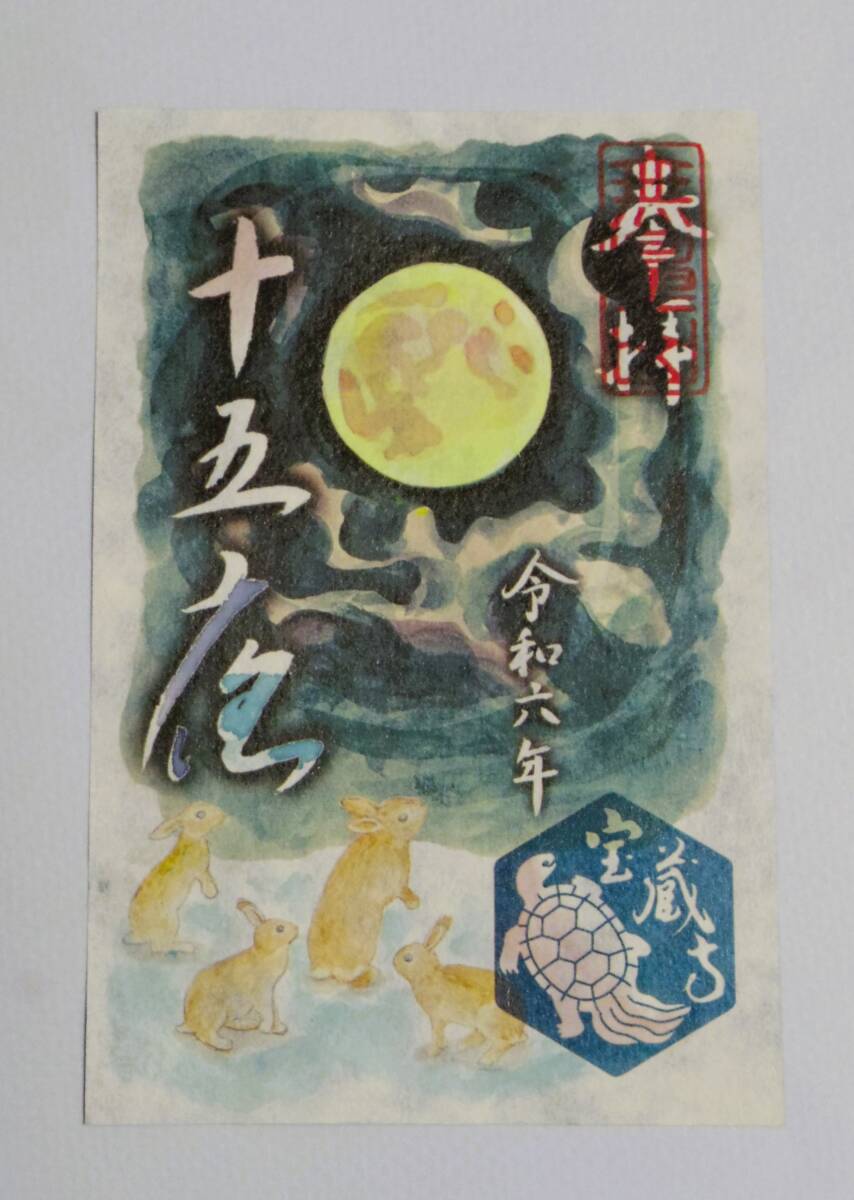 奉拝
令和六年
十五夜
宝蔵寺